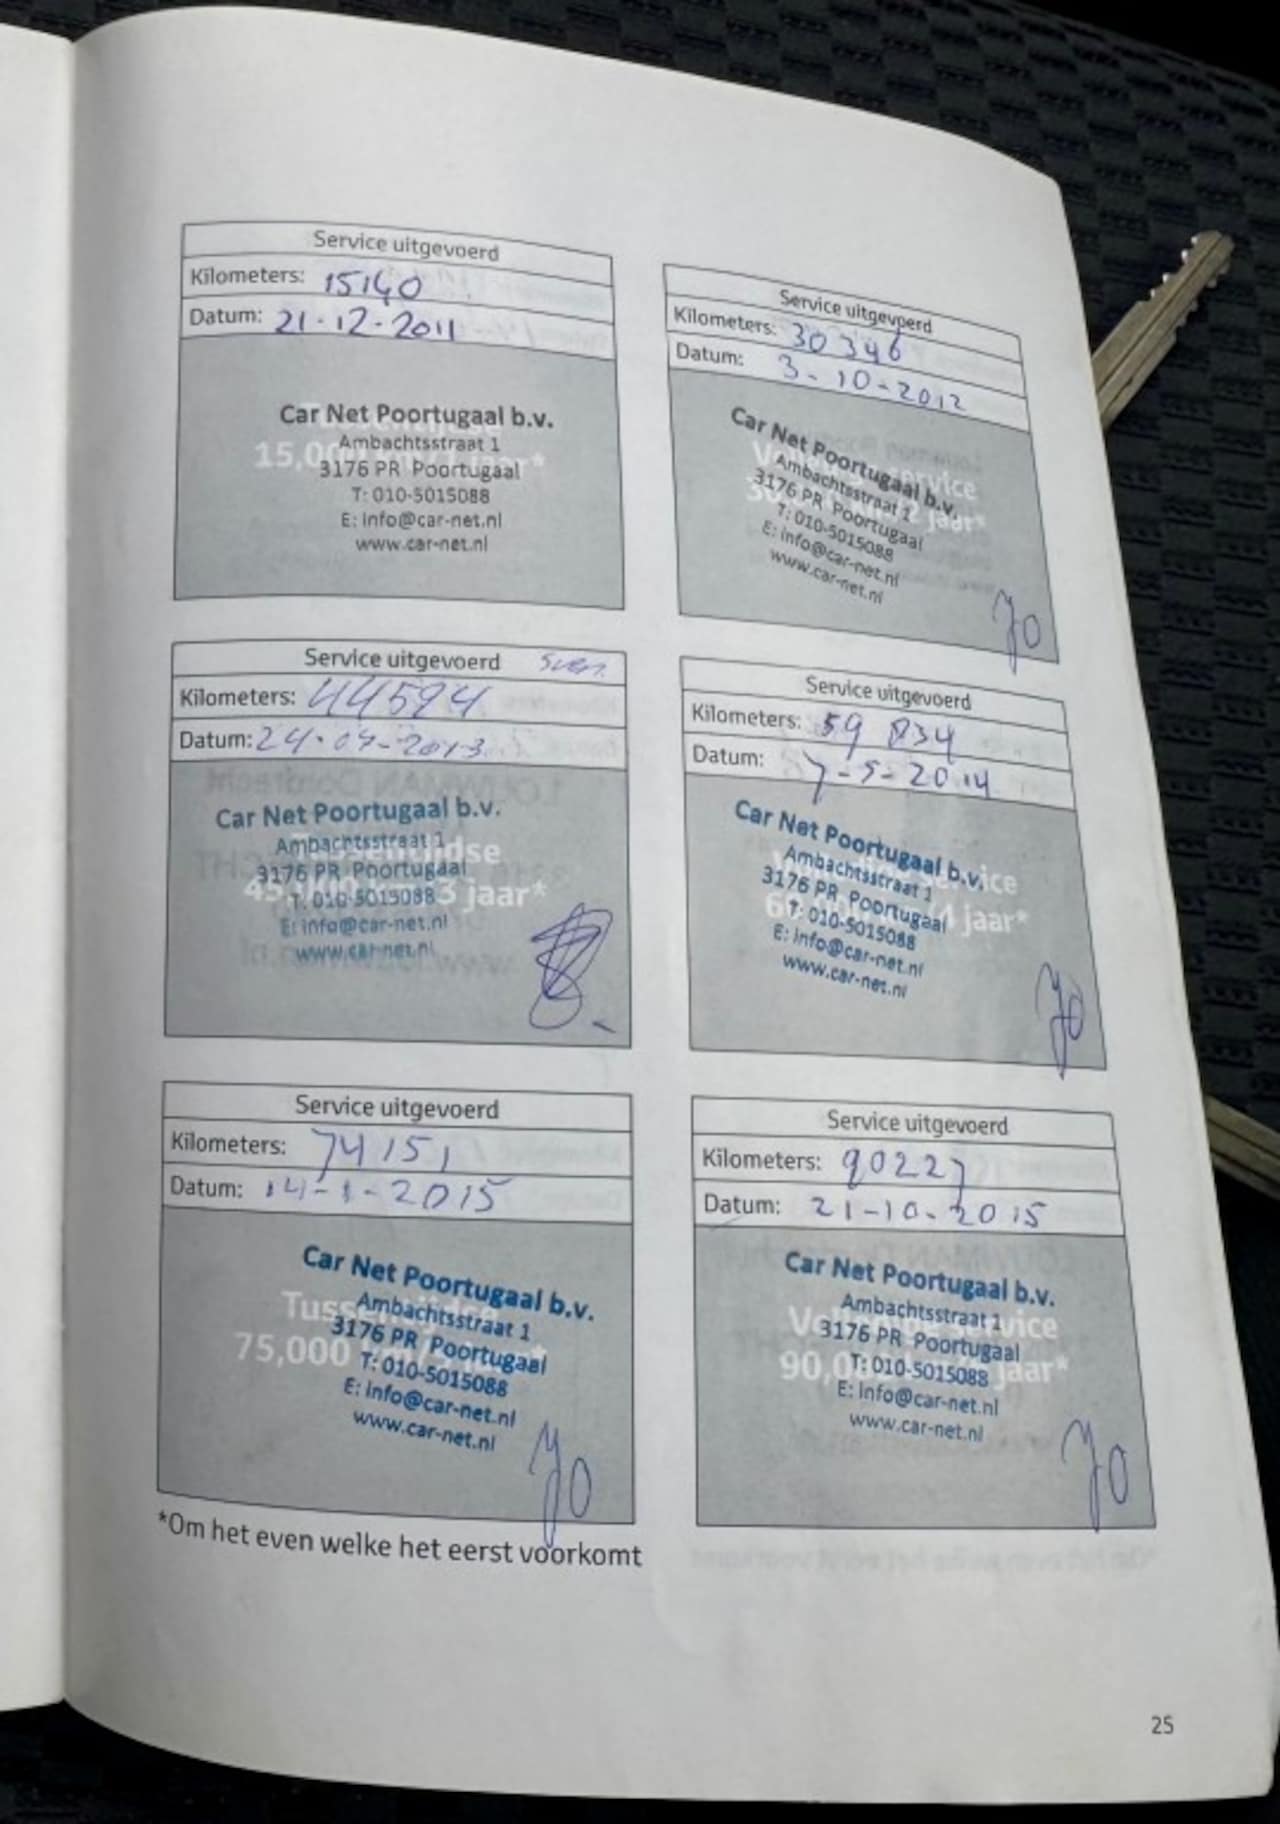 Service uitgevoerd
Kilometers: 15140
Datum: 21-12-2011
Car Net Poortugaal b.v.
Ambachtsstraat 1
15,000 jaar*
3176 PR Poortugaal
T: 010-5015088
E: info@car-net.nl
www.car-net.nl
Service uitgevoerd
Kilometers: 30346
Datum: 3-10-2012
Car Net Poortugaal b.v.
Ambachtsstraat 1
3176 PR Poortugaal
T: 010-5015088
E: info@car-net.nl
www.car-net.nl
jaar*
Jo
Service uitgevoerd Sven
Kilometers: 44594
Datum: 24-04-2013
Car Net Poortugaal b.v.
Ambachtsstraat 1
Tussentijdse
3176 PR Poortugaal
45,000 3 jaar*
T: 010-5015088
E: info@car-net.nl
www.car-net.nl
Service uitgevoerd
Kilometers: 59 834
Datum: 7-5-2014
Car Net Poortugaal b.v.
Ambachtsstraat 1
3176 PR Poortugaal
4 jaar*
T: 010-5015088
E: info@car-net.nl
www.car-net.nl
Jo
Service uitgevoerd
Kilometers: 74151
Datum: 14-1-2015
Car Net Poortugaal b.v.
Tussentijdse
Ambachtsstraat 1
3176 PR Poortugaal
75,000
T: 010-5015088
E: info@car-net.nl
www.car-net.nl
Jo
Service uitgevoerd
Kilometers: 90227
Datum: 21-10-2015
Car Net Poortugaal b.v.
Ambachtsstraat 1
Volledige service
3176 PR Poortugaal
90,000 jaar*
T: 010-5015088
E: info@car-net.nl
www.car-net.nl
Jo
*Om het even welke het eerst voorkomt
25